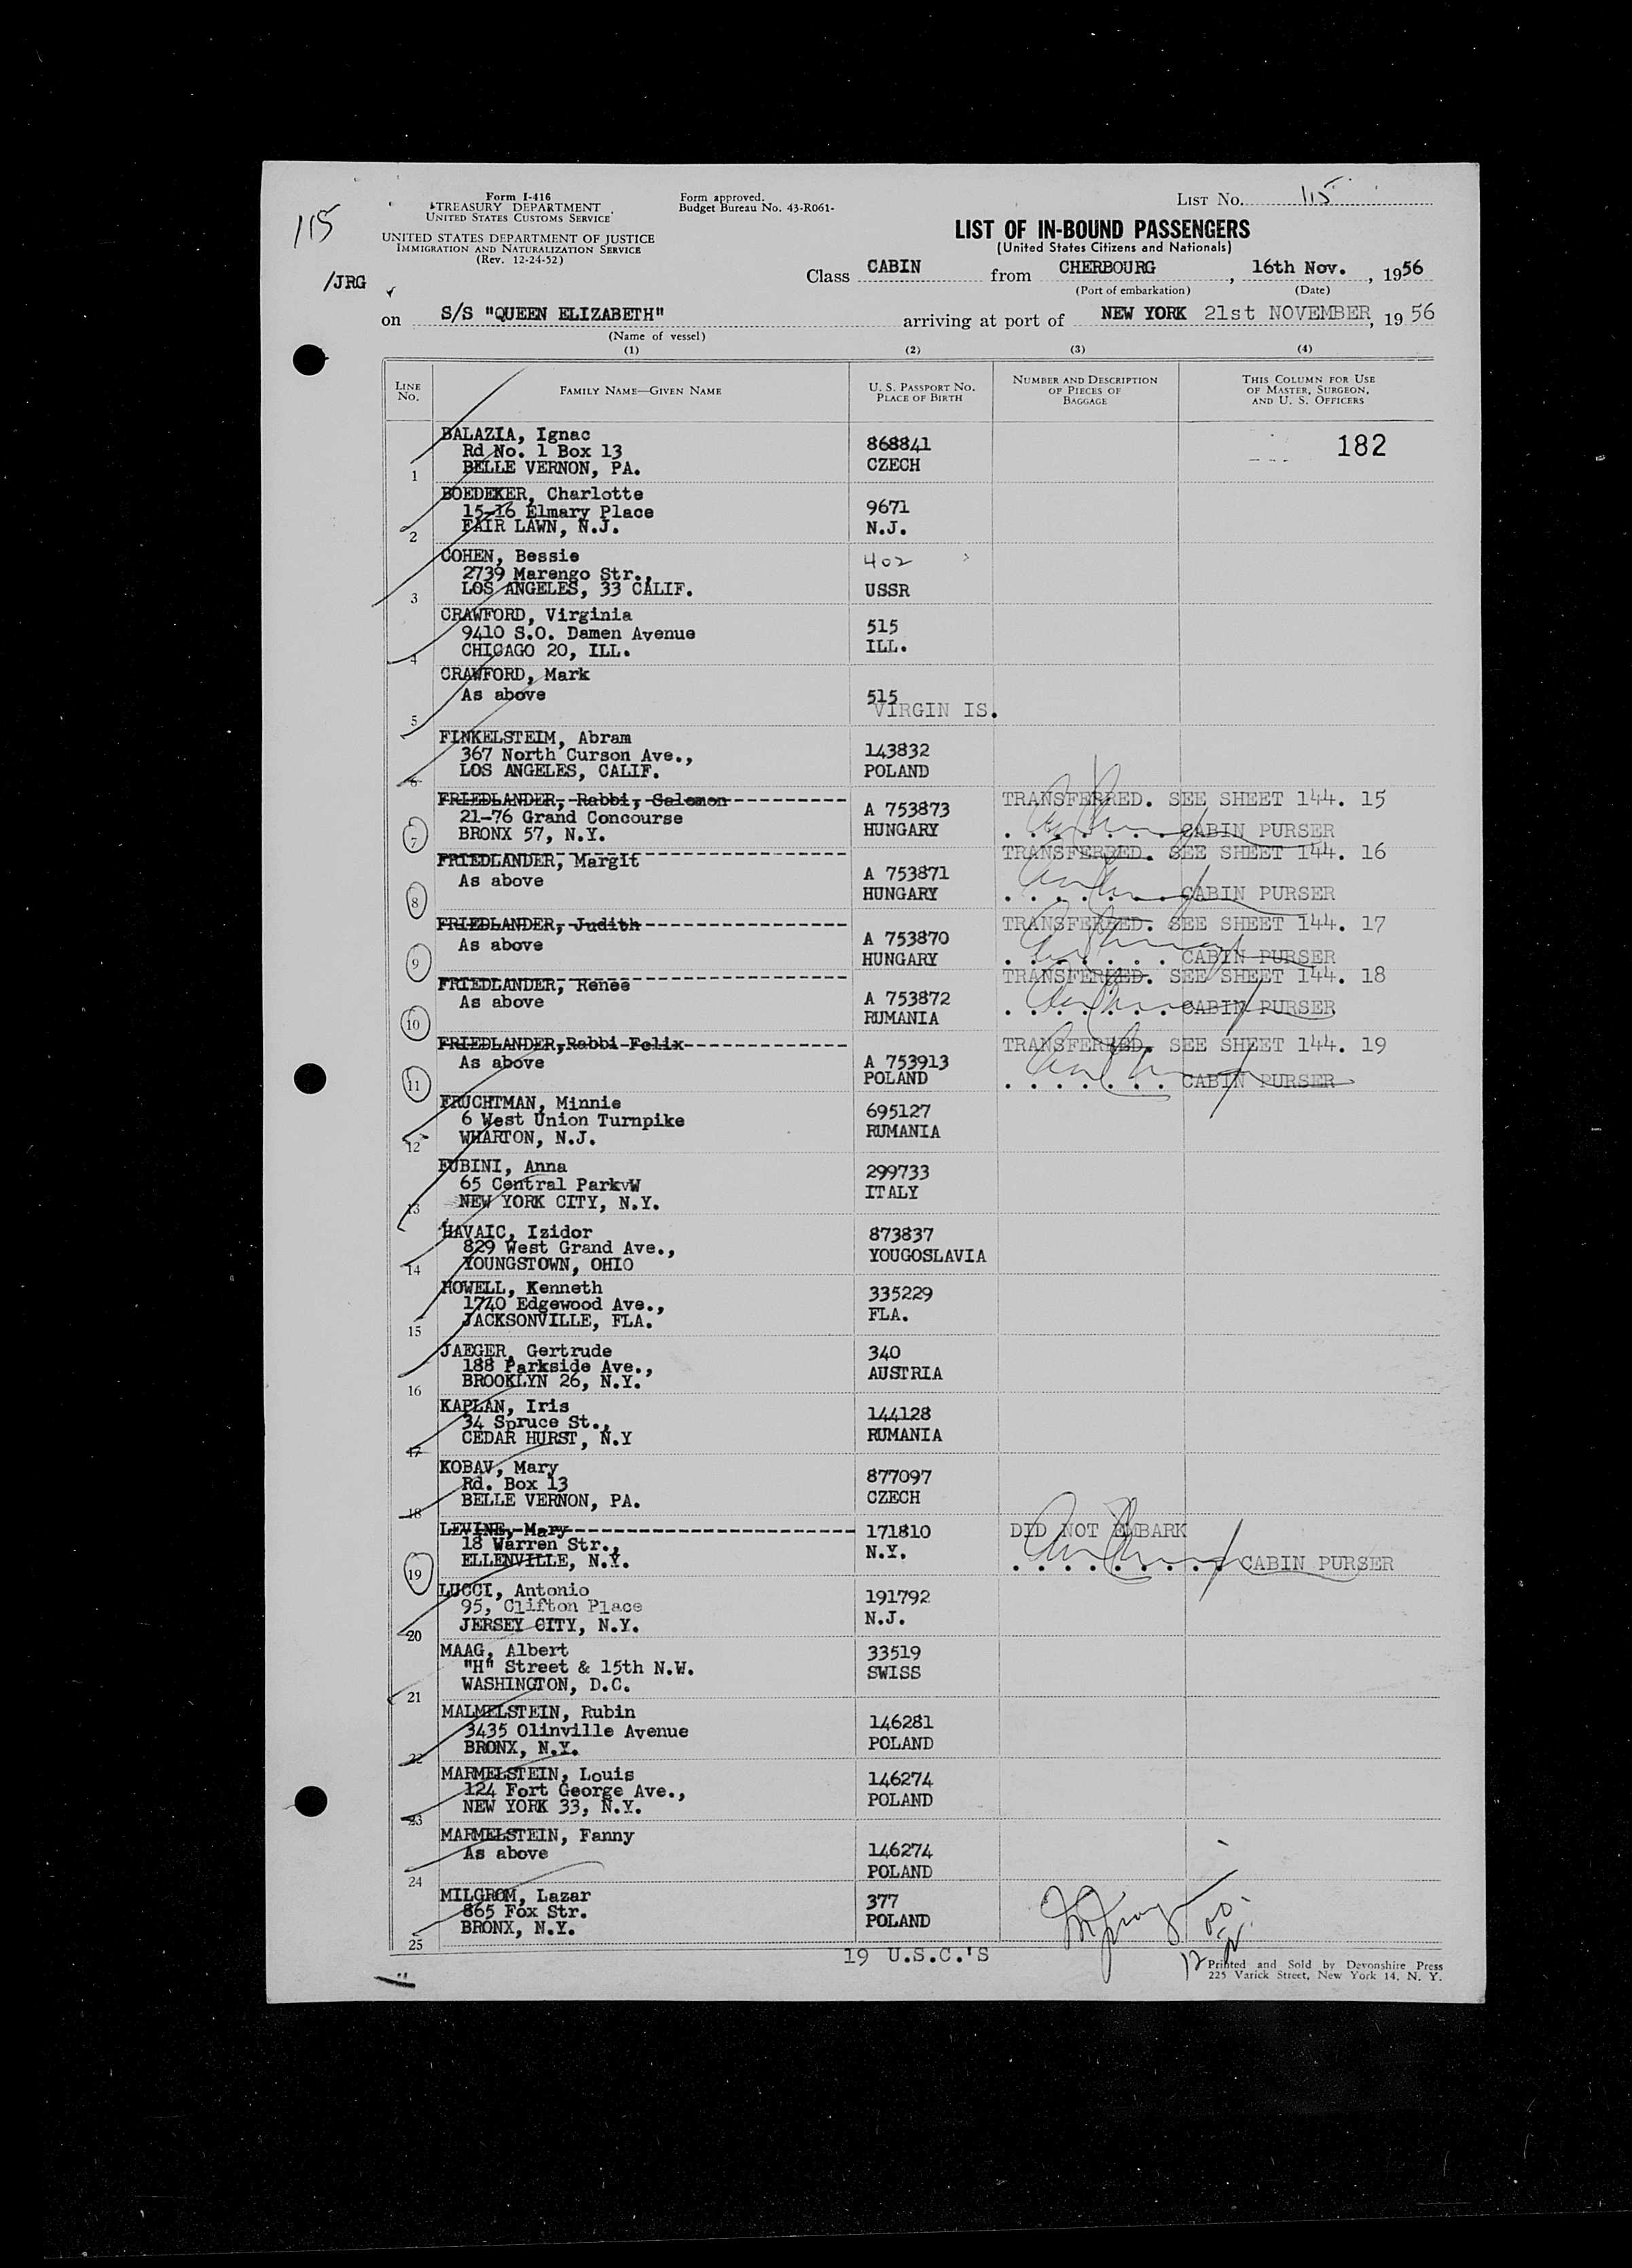 115
Form I-416
TREASURY DEPARTMENT
UNITED STATES CUSTOMS SERVICE
UNITED STATES DEPARTMENT OF JUSTICE
IMMIGRATION AND NATURALIZATION SERVICE
(Rev. 12-24-52)
Form approved.
Budget Bureau No. 43-R061-
LIST No. 115
LIST OF IN-BOUND PASSENGERS
(United States Citizens and Nationals)
/JRG
Class CABIN from CHERBOURG, 16th Nov., 1956
(Port of embarkation) (Date)
on S/S "QUEEN ELIZABETH" arriving at port of NEW YORK 21st NOVEMBER, 1956
(Name of vessel)
(1) (2) (3) (4)
LINE No. FAMILY NAME—GIVEN NAME U. S. PASSPORT No. PLACE OF BIRTH NUMBER AND DESCRIPTION OF PIECES OF BAGGAGE THIS COLUMN FOR USE OF MASTER, SURGEON, AND U. S. OFFICERS
BALAZIA, Ignac 868841 182
Rd No. 1 Box 13 CZECH
1 BELLE VERNON, PA.
BOEDEKER, Charlotte
15-16 Elmary Place 9671
2 FAIR LAWN, N.J. N.J.
COHEN, Bessie 402
2739 Marengo Str.,
3 LOS ANGELES, 33 CALIF. USSR
CRAWFORD, Virginia
9410 S.O. Damen Avenue 515
4 CHICAGO 20, ILL. ILL.
CRAWFORD, Mark
As above 515
5 VIRGIN IS.
FINKELSTEIM, Abram
367 North Curson Ave., 143832
6 LOS ANGELES, CALIF. POLAND
FRIEDLANDER, Rabbi, Salomon TRANSFERRED. SEE SHEET 144. 15
21-76 Grand Concourse A 753873
7 BRONX 57, N.Y. HUNGARY CABIN PURSER
FRIEDLANDER, Margit TRANSFERRED. SEE SHEET 144. 16
As above A 753871
8 HUNGARY CABIN PURSER
FRIEDLANDER, Judith TRANSFERRED. SEE SHEET 144. 17
As above A 753870
9 HUNGARY CABIN PURSER
FRIEDLANDER, Renee TRANSFERRED. SEE SHEET 144. 18
As above A 753872
10 RUMANIA CABIN PURSER
FRIEDLANDER, Rabbi Felix TRANSFERRED. SEE SHEET 144. 19
As above A 753913
11 POLAND CABIN PURSER
FRUCHTMAN, Minnie
6 West Union Turnpike 695127
12 WHARTON, N.J. RUMANIA
FUBINI, Anna
65 Central ParkvW 299733
13 NEW YORK CITY, N.Y. ITALY
HAVAIC, Izidor 873837
829 West Grand Ave., YOUGOSLAVIA
14 YOUNGSTOWN, OHIO
HOWELL, Kenneth 335229
1740 Edgewood Ave., FLA.
15 JACKSONVILLE, FLA.
JAEGER, Gertrude 340
188 Parkside Ave., AUSTRIA
16 BROOKLYN 26, N.Y.
KAPLAN, Iris 144128
34 Spruce St., RUMANIA
17 CEDAR HURST, N.Y
KOBAV, Mary 877097
Rd. Box 13 CZECH
18 BELLE VERNON, PA.
LEVINE, Mary 171810 DID NOT EMBARK
18 Warren Str., N.Y.
19 ELLENVILLE, N.Y. CABIN PURSER
LUCCI, Antonio 191792
95, Clifton Place N.J.
20 JERSEY CITY, N.Y.
MAAG, Albert 33519
"H" Street & 15th N.W. SWISS
21 WASHINGTON, D.C.
MALMELSTEIN, Rubin 146281
3435 Olinville Avenue POLAND
22 BRONX, N.Y.
MARMELSTEIN, Louis 146274
124 Fort George Ave., POLAND
23 NEW YORK 33, N.Y.
MARMELSTEIN, Fanny 146274
As above POLAND
24
MILGROM, Lazar 377
865 Fox Str. POLAND
25 BRONX, N.Y.
19 U.S.C.'S
Printed and Sold by Devonshire Press
225 Varick Street, New York 14, N. Y.